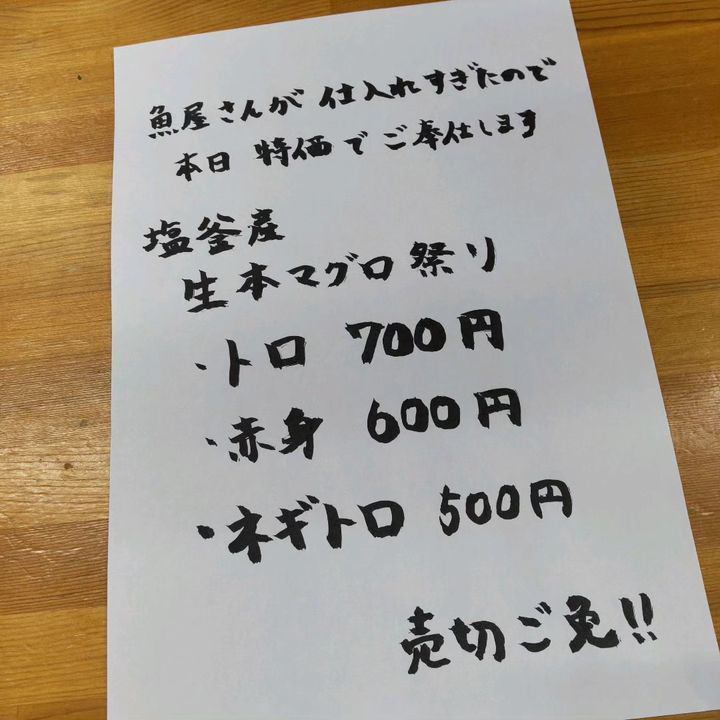 魚屋さんが 仕入れすぎたので
本日 特価でご奉仕します
塩釜産
生本マグロ祭り
・トロ 700円
・赤身 600円
・ネギトロ 500円
売切ご免!!